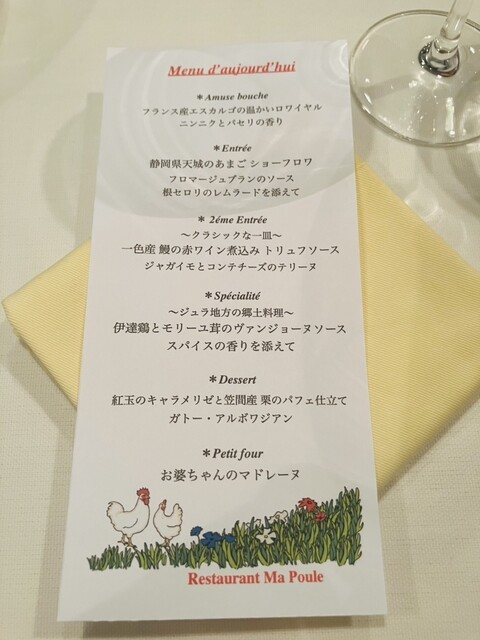 Menu d'aujourd'hui
＊Amuse bouche
フランス産エスカルゴの温かいロワイヤル
ニンニクとパセリの香り
＊Entrée
静岡県天城のあまご ショーフロワ
フロマージュブランのソース
根セロリのレムラードを添えて
＊2éme Entrée
～クラシックな一皿～
一色産 鰻の赤ワイン煮込み トリュフソース
ジャガイモとコンテチーズのテリーヌ
＊Spécialité
～ジュラ地方の郷土料理～
伊達鶏とモリーユ茸のヴァンジョーヌソース
スパイスの香りを添えて
＊Dessert
紅玉のキャラメリゼと笠間産 栗のパフェ仕立て
ガトー・アルボワジアン
＊Petit four
お婆ちゃんのマドレーヌ
Restaurant Ma Poule